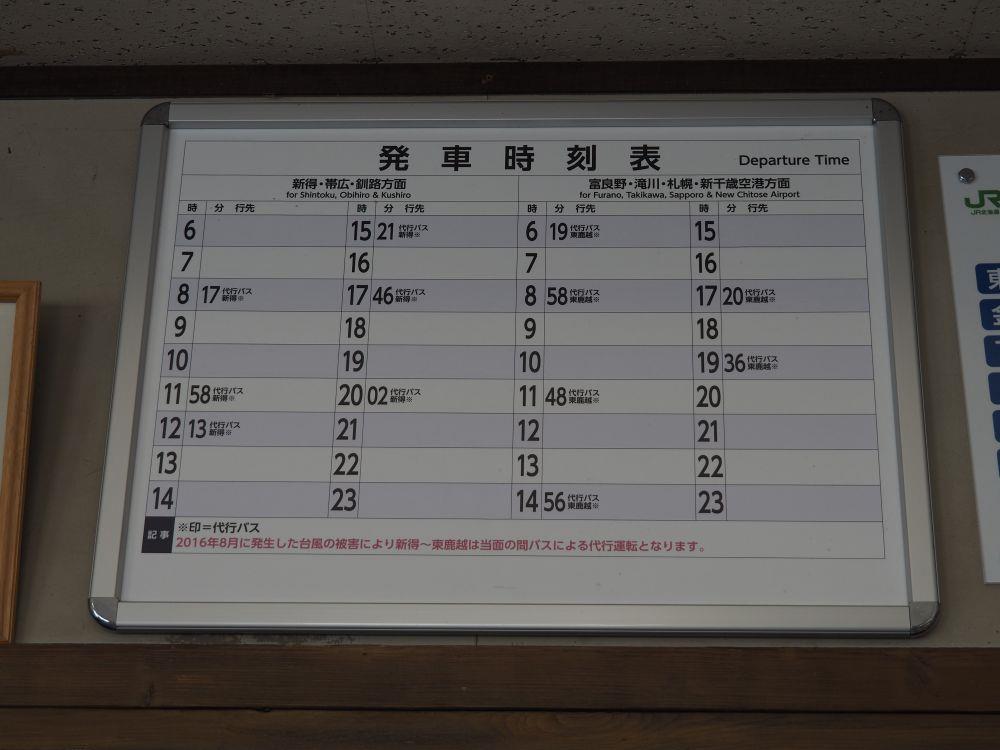 発車時刻表 Departure Time
新得・帯広・釧路方面
for Shintoku, Obihiro & Kushiro
富良野・滝川・札幌・新千歳空港方面
for Furano, Takikawa, Sapporo & New Chitose Airport
時 分 行先 時 分 行先 時 分 行先 時 分 行先
6 15 21 代行バス 新得※ 6 19 代行バス 東鹿越※ 15
7 16 7 16
8 17 代行バス 新得※ 17 46 代行バス 新得※ 8 58 代行バス 東鹿越※ 17 20 代行バス 東鹿越※
9 18 9 18
10 19 10 19 36 代行バス 東鹿越※
11 58 代行バス 新得※ 20 02 代行バス 新得※ 11 48 代行バス 東鹿越※ 20
12 13 代行バス 新得※ 21 12 21
13 22 13 22
14 23 14 56 代行バス 東鹿越※ 23
記事
※印=代行バス
2016年8月に発生した台風の被害により新得～東鹿越は当面の間バスによる代行運転となります。
JR
JR北海道
東